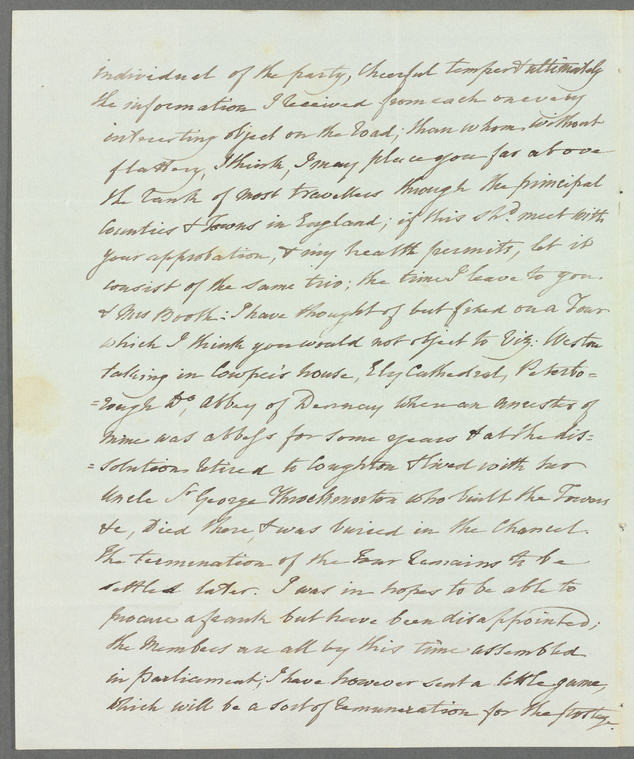 individual of the party, cheerful temper & ultimately
the information I received from each on every
interesting object on the Road; than whom, without
flattery, I think, I may place you far above
the rank of most travellers through the principal
Counties & Towns in England; if this shd. meet with
your approbation, & my health permits, let it
consist of the same trio; the time I leave to you
& Mrs Booth: I have thought of but fixed on a Tour
which I think you would not object to Viz: Weston
taking in Cowper's house, Ely Cathedral, Peterbo=
=rough Do, Abbey of Dennay where an Ancestor of
mine was abbess for some years & at the dis=
=solution retired to Coughton & lived with her
Uncle Sr George Throckmorton who built the Towers
&c, Died there, & was buried in the Chancel.
The termination of the Tour remains to be
settled later. I was in hopes to be able to
procure a frank but have been disappointed;
the Members are all by this time assembled
in parliament; I have however sent a little game,
which will be a sort of remuneration for the postage.